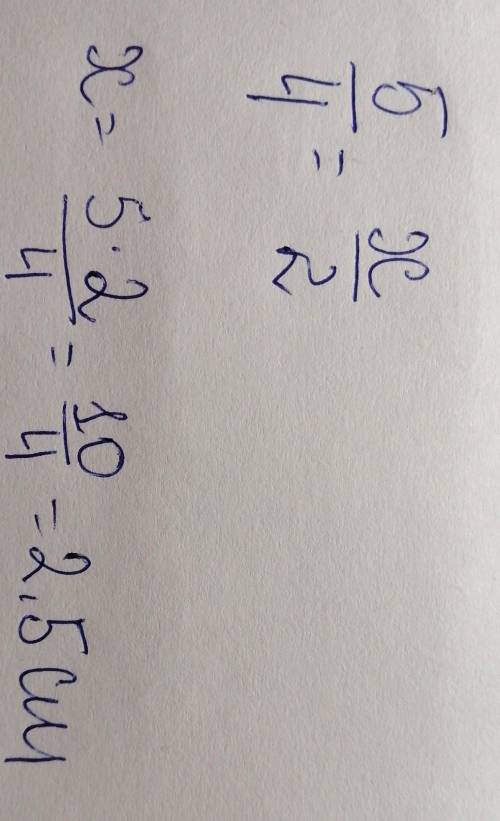 5/4 = x/2
x = 5·2/4 = 10/4 = 2,5 см